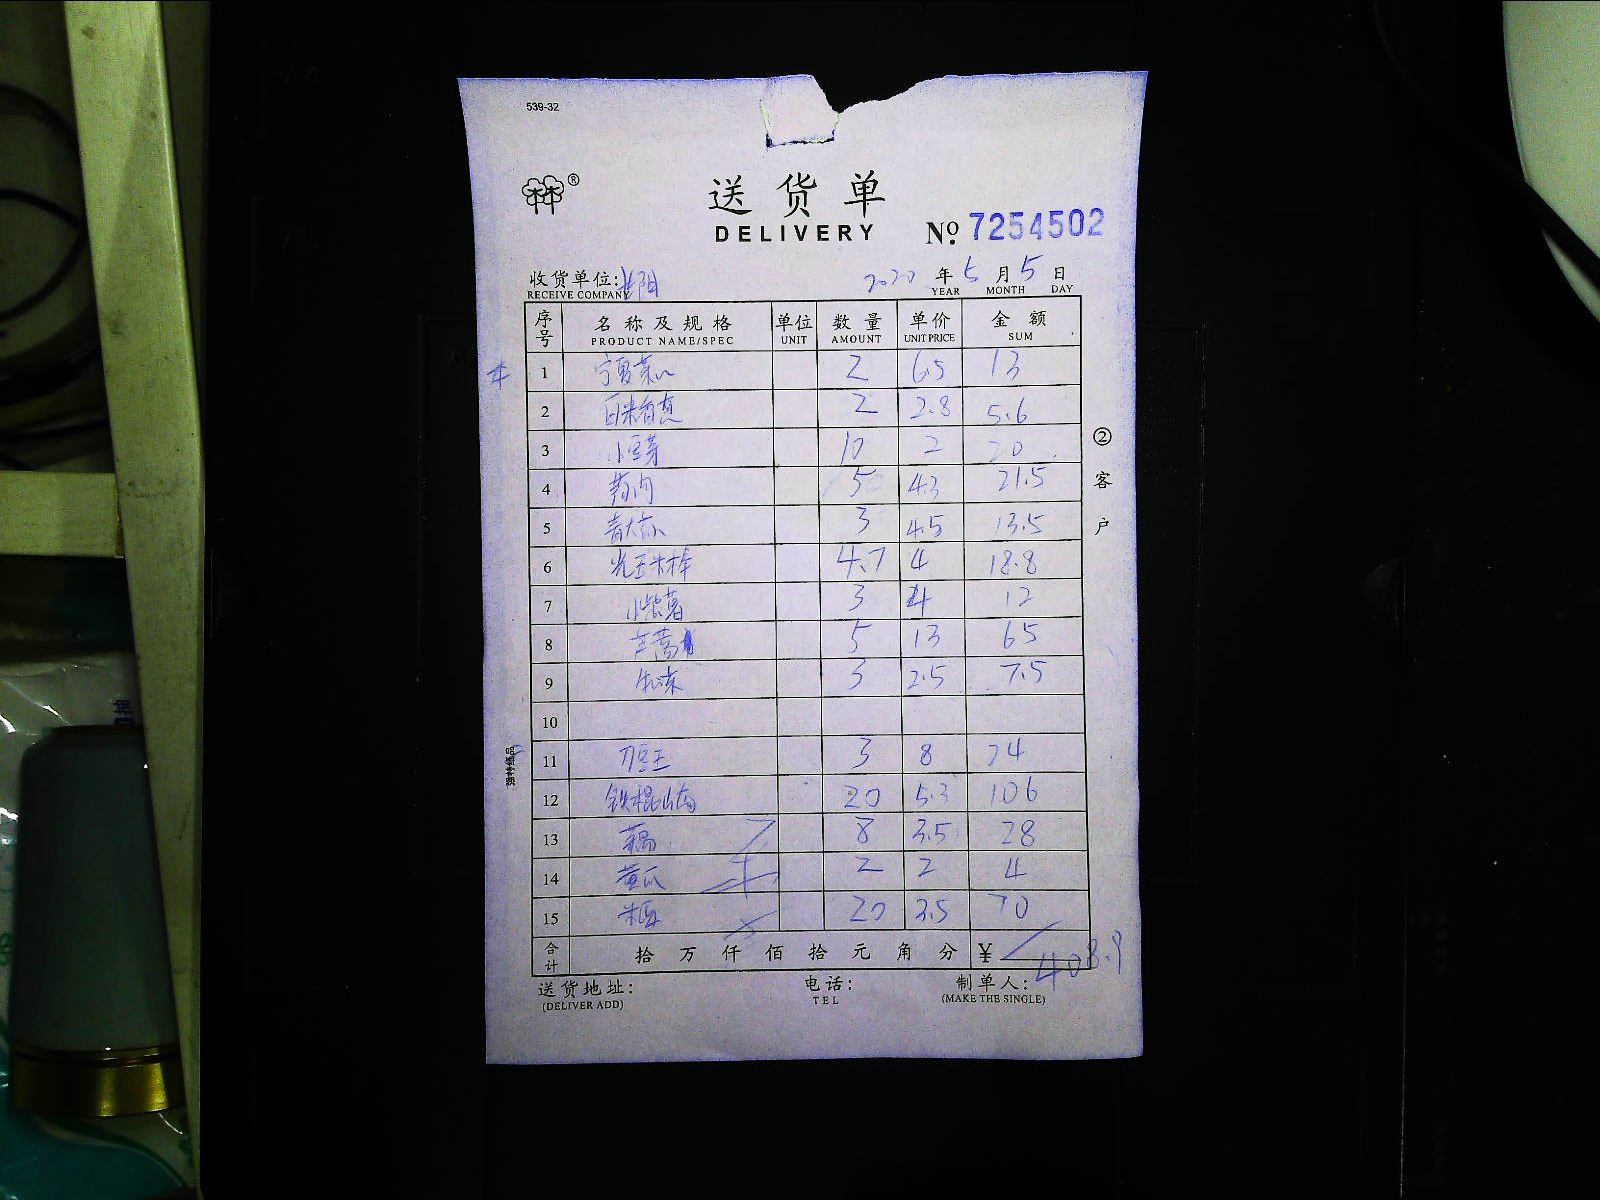 539-32
林®
送货单
DELIVERY № 7254502
收货单位: 2020 年 5 月 5 日
RECEIVE COMPANY YEAR MONTH DAY
序号 名称及规格 单位 数量 单价 金额
PRODUCT NAME/SPEC UNIT AMOUNT UNIT PRICE SUM
1 宁夏菜心 2 6.5 13
2 白米苋 2 2.8 5.6
3 小豆芽 10 2 20
4 5 4.3 21.5
5 3 4.5 13.5
6 光玉米棒 4.7 4 18.8
7 小紫薯 3 4 12
8 芦蒿 5 13 65
9 3 2.5 7.5
10
11 刀豆王 3 8 24
12 铁棍山药 20 5.3 106
13 8 3.5 28
14 黄瓜 2 2 4
15 20 3.5 70
合计 拾 万 仟 佰 拾 元 角 分 ¥ 408.9
送货地址: 电话: 制单人:
(DELIVER ADD) TEL (MAKE THE SINGLE)
② 客户